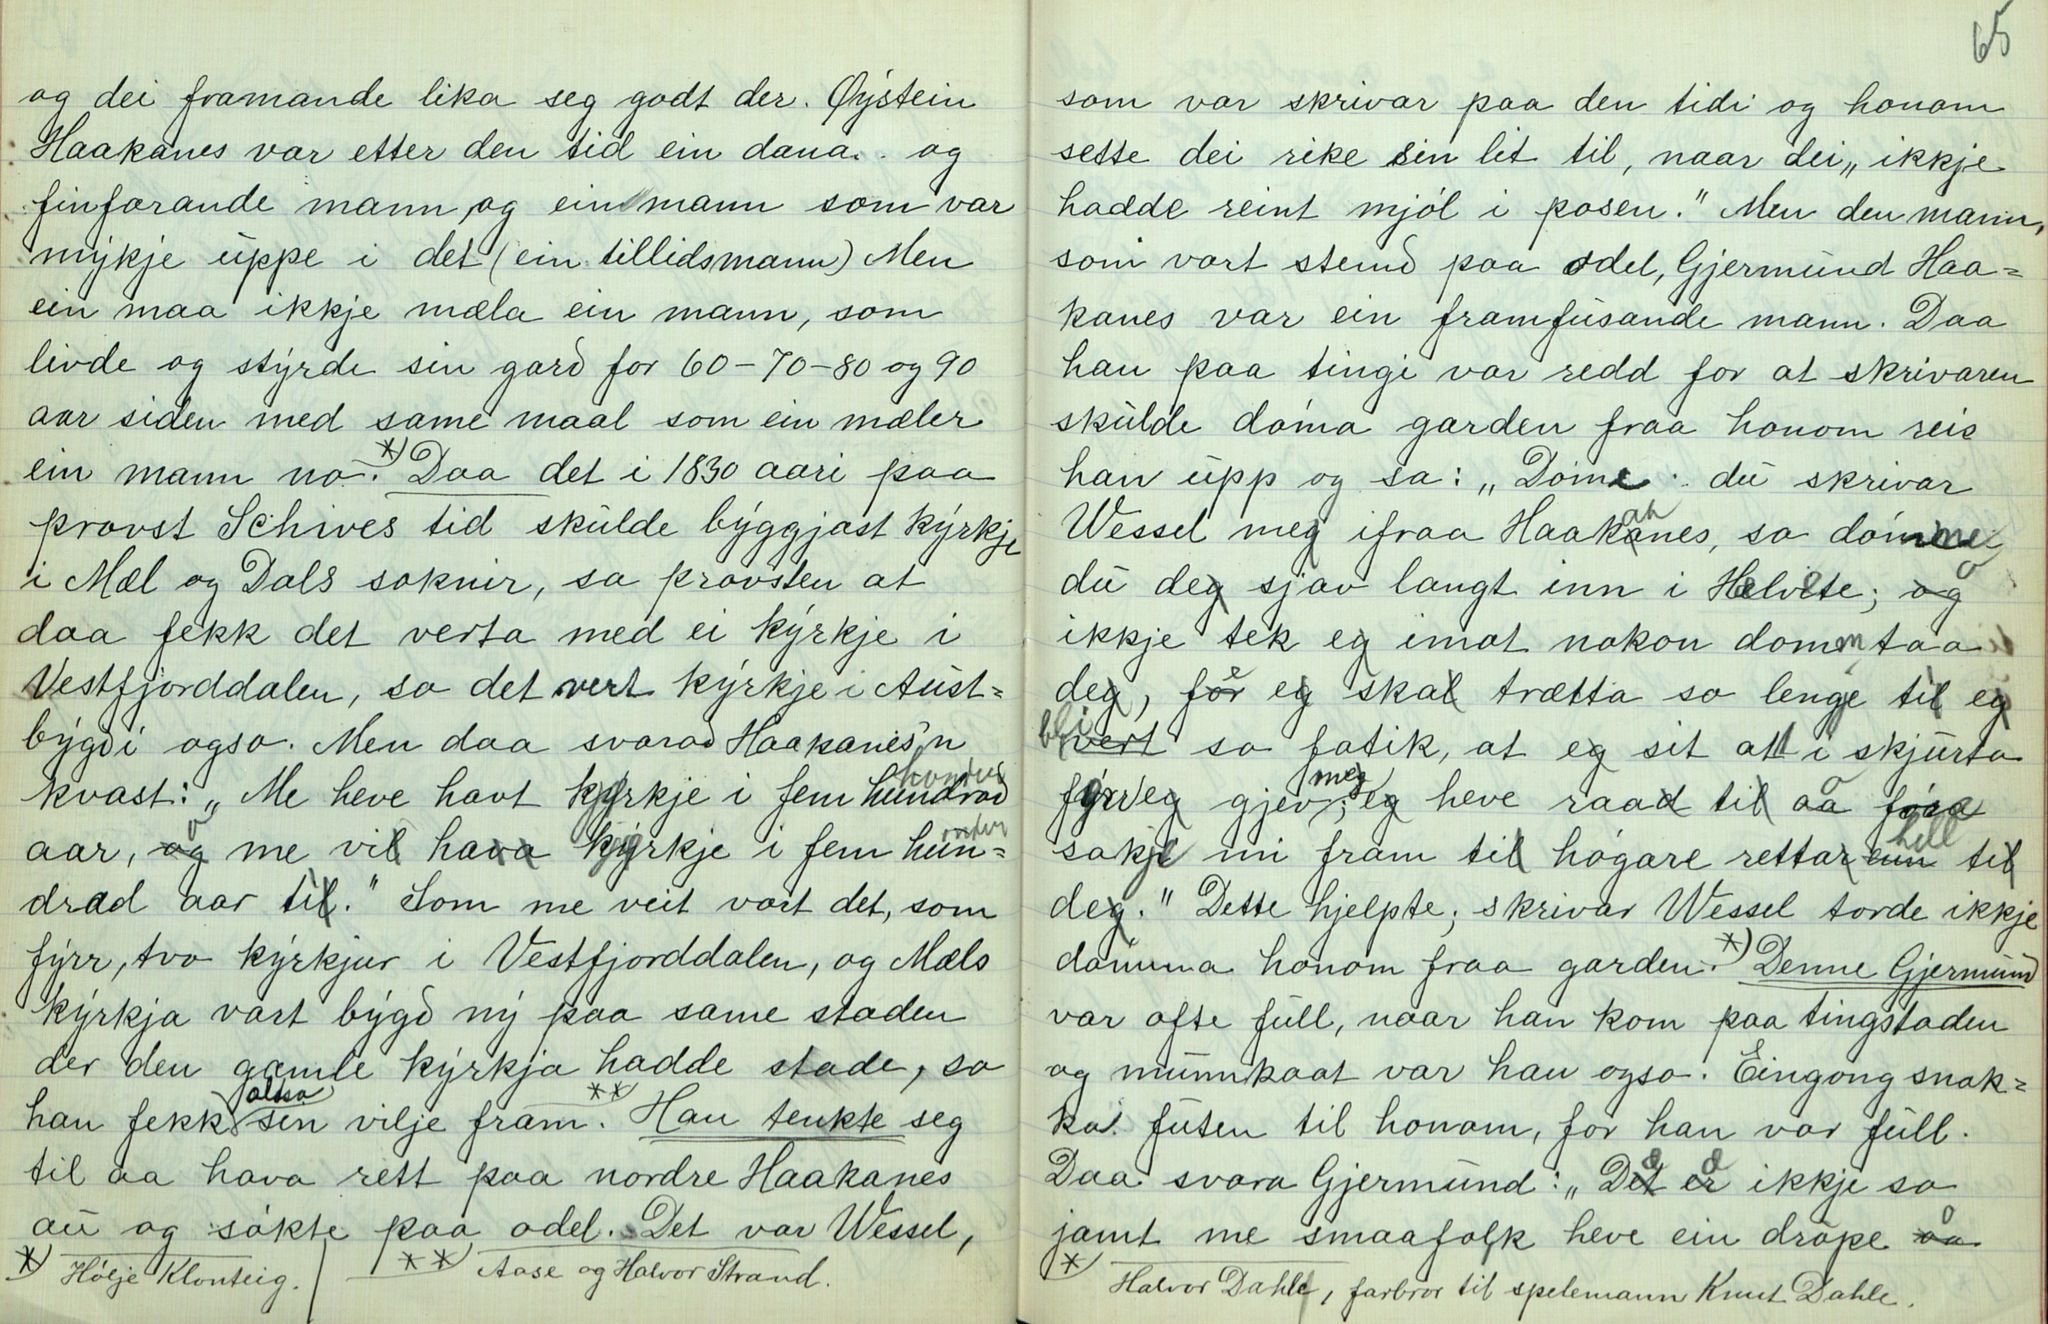 og dei framande lika seg godt der. Øystein
Haakanes var etter den tid ein dana . og
finfarande mann, og ein mann som var
mykje uppe i det (ein tillidsmann) Men
ein maa ikkje mæla ein mann, som
livde og styrde sin gard for 60-70-80 og 90
aar siden med same maal som ein mæler
ein mann no. *) Daa det i 1830 aari paa
provst Schives tid skulde byggjast kyrkje
i Mæl og Dals soknir, sa provsten at
daa fekk det verta med ei kyrkje i
Vestfjorddalen, so det vert kyrkje i Aust=
bygdi ogso. Men daa svarad Haakanes'n
kvast: „Me heve havt kyrkje i fem hundrad
aar, og me vil hava kyrkje i fem hun=
drad aar til." Som me veit vart det, som
fyrr, tvo kyrkjur i Vestfjorddalen, og Mæls
kyrkja vart bygd ny paa same staden
der den gamle kyrkja hadde stade, so
han fekk altso sin vilje fram. ** Han tenkte seg
til aa hava rett paa nordre Haakanes
au og søkte paa odel. Det var Wessel,
*) Hølje Klonteig. **) Aase og Halvor Strand.
65
som var skrivar paa den tidi og honom
sette dei rike sin lit til, naar dei „ikkje
hadde reint mjøl i posen." Men den mann,
som vart stemd paa odel, Gjermund Haa=
kanes var ein framfusande mann. Daa
han paa tingi var redd for at skrivaren
skulde døma garden fraa honom reis
han upp og sa: „Døme du skrivar
Wessel meg ifraa Haakanes, so dømme
du deg sjav langt inn i Helvete; og
ikkje tek eg imot nokon domm taa
deg, før eg skal trætta so lenge til eg
vert so fatik, at eg sit att i skjurta
fyrr eg gjev meg; eg heve raad til aa føra
sakje mi fram til høgare rettar enn til
deg." Dette hjelpte; skrivar Wessel torde ikkje
dømma honom fraa garden. *) Denne Gjermund
var ofte full, naar han kom paa tingstaden
og munnkaat var han ogso. Eingong snak=
ka futen til honom, for han var full.
Daa svara Gjermund: „Det er ikkje so
jamt me smaafolk heve ein drope aa
*) Halvor Dahle, farbror til spelemann Knut Dahle.